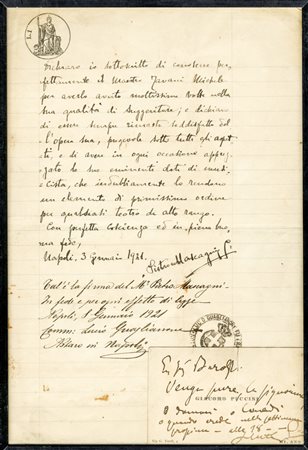 Dichiaro io sottoscritto di conoscere per-
fettamente il Maestro Michele
per averlo avuto moltissime volte nella
sua qualità di suggeritore; e dichiaro
di essere sempre rimasto soddisfatto del-
l'opera sua, sotto tutti gli aspet-
ti, e di avere in ogni occasione apprez-
zato le sue eminenti doti di musi-
cista, che indubbiamente lo rendono
un elemento di primissimo ordine
per qualsiasi teatro di alto rango.
Con perfetta coscienza ed in piena buo-
na fede,
Napoli, 3 Gennaio 1921.
Pietro Mascagni
Tal'è la firma del M° Pietro Mascagni
In fede e per ogni effetto di legge
Napoli, Gennaio 1921
Comm: Luigi
Notaro in Napoli
Venga pure la
GIACOMO PUCCINI
o domani o
o quando crede nella settimana
prossima - alle 18 -